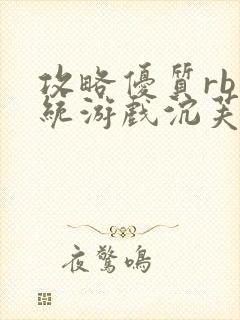 攻略優質rb
統游戲沉芙
夜驚鳴